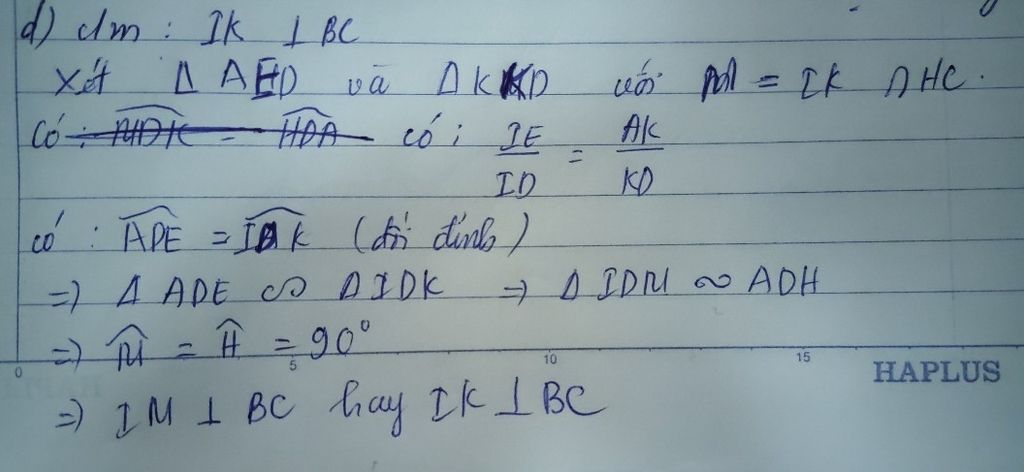 d) c/m : IK ⊥ BC
Xét Δ AED và Δ KD với M = IK ∩ HC.
Có : có : IE/ID = AK/KD
có : ADE = IDK (đối đỉnh)
=> Δ ADE ∽ Δ IDK => Δ IDM ∽ ADH
=> M = H = 90°
0 5 10 15
HAPLUS
=> IM ⊥ BC hay IK ⊥ BC